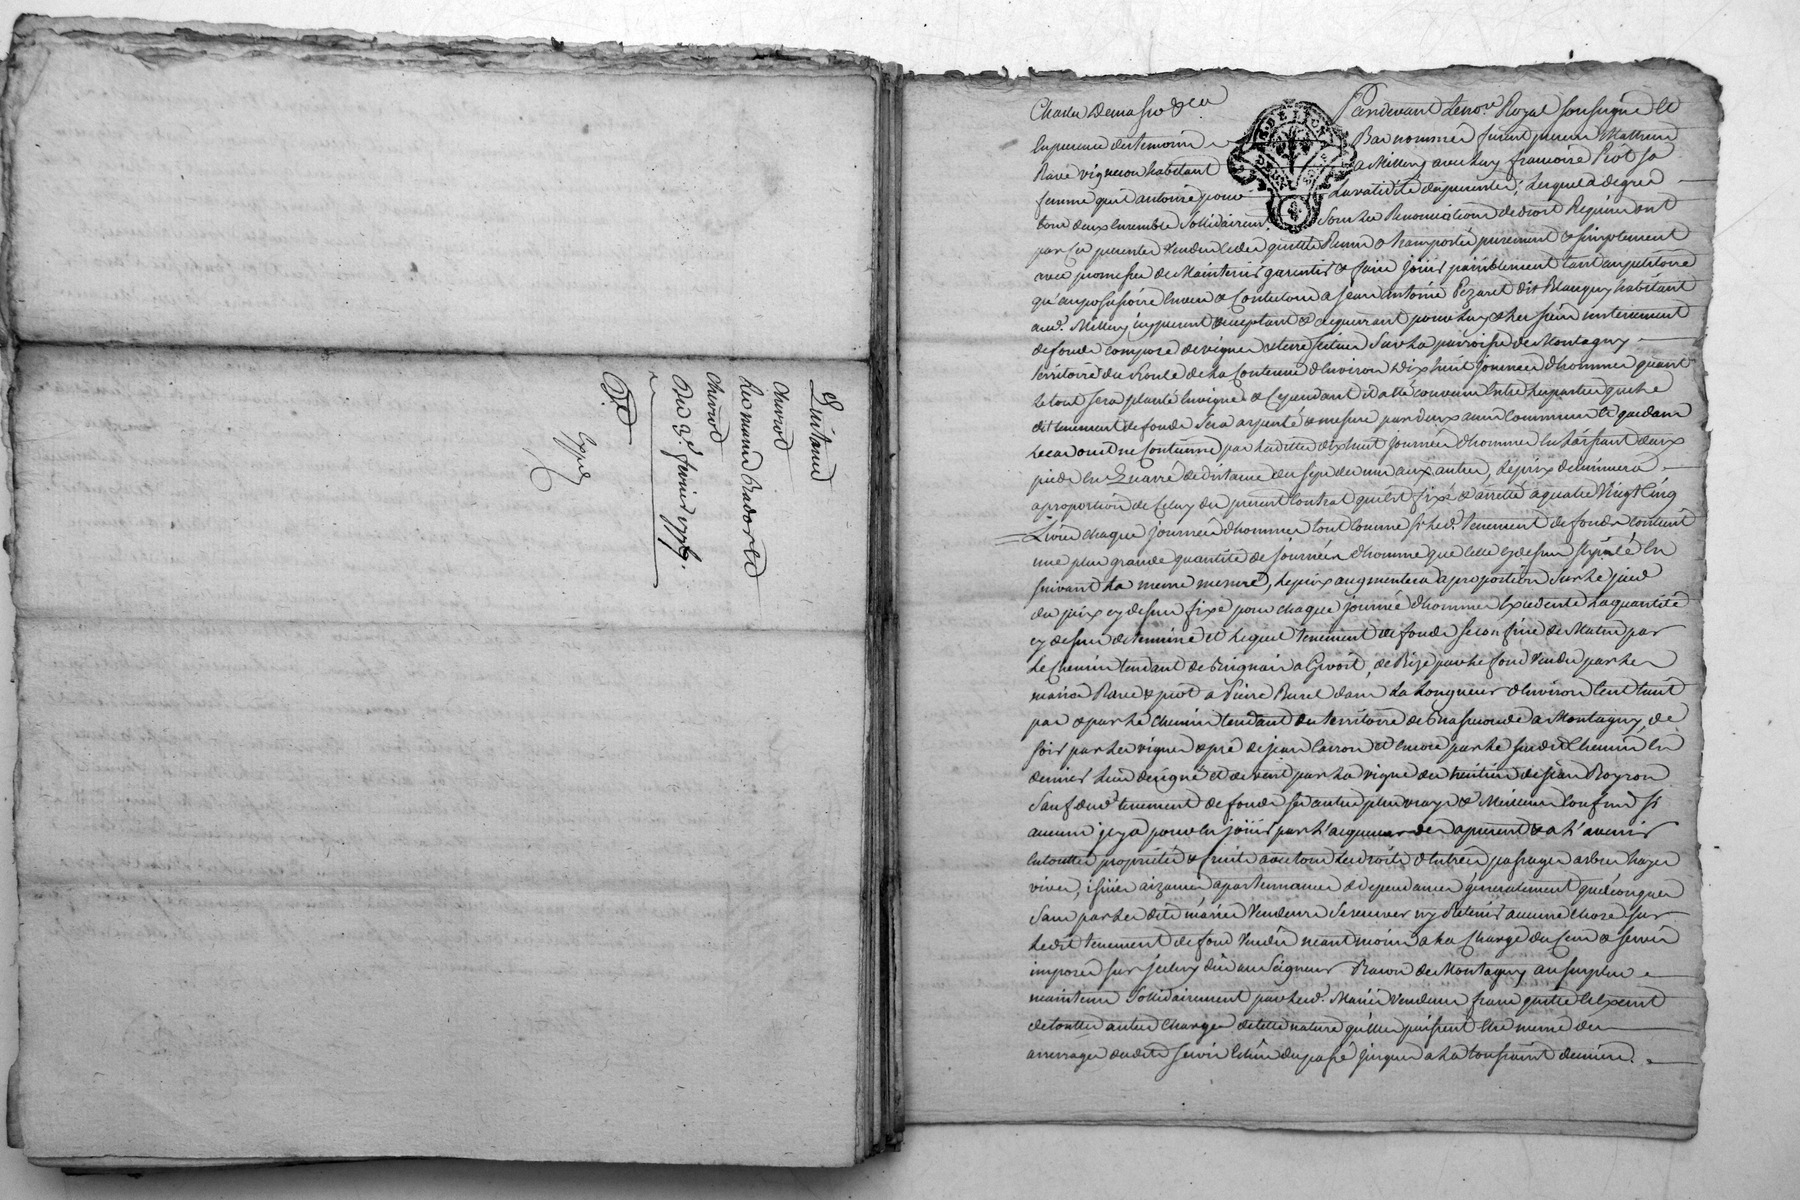 Quitance
Chuirot
Les mariés
Chuirot
Du 3e. février 1776.
Exped
Pardevant le nore. Royal soussigné et
En presence des temoins Bas nommés furent presens Mathieu
Ravé vigneron habitant a Millery avec luy francoise Piot sa
femme qu'il autorise pour la validité des presentes; Lesquels de gré
tous deux Ensemble Sollidairemt. Sous les Renonciations de droit Requises ont
par Ces presentes vendu Cedé quitté Remis & transporté purement & simplement
avec promesse de Maintenir garentir & faire jouir paisiblement tant au petitoire
qu'au possessoire Envers & Contre tous a Jean Antoine Pezaret dit Blanguy habitant
aud. Millery icy present acceptant & acquerant pour luy & les siens un tenement
de fonds composé de vigne & terre scitué Sur La parroisse de Montagny
territoire du de La Contenue d'Environ Dix huit journées d'hommes quant
Le tout sera planté En vigne & Cependant il a été convenu Entre Les parties que le
dit tenement de fonds sera arpenté & mesuré par deux amis Communs Et que dans
Le cas ou il ne Contienne pas Lesdittes dix huit journées d'hommes En laissant deux
pieds En quarré de distance des seps des uns aux autres, Le prix diminuera
a proportion de Celuy du present Contrat qui Est fixé & arretté a quatre Vingt Cinq
Livres chaque journée d'hommes tout Comme si led. tenement de fonds Contient
une plus grande quantité de journées d'homme que Celle cy dessus stipulé En
suivant La meme mesure, Le prix augmentera a proportion Sur Le pied
du prix cy dessus fixé pour chaque journée d'hommes Excedente La quantité
cy dessus determiné Et Lequel tenement de fonds se confine de Matin par
Le Chemin tendant de Brignais a Givort, de Bize par Le fond Vendu par Les
mariés Ravé & piot a Pierre Burel dans La Longueur d'Environ Cent huit
pas & par Le chemin tendant du territoire de a Montagny, de
soir par Les vigne & pré de jean Cairon Et Encore par Le susdit Chemin En
dernier Lieu designé Et de vent par La vigne des heritiers de Jean Royron
Sauf dud. tenement de fonds ses autres plus vrays & Meilleurs Confins si
aucuns y a pour En jouir par L'acquereur des a present & a L'avenir
En toutte proprieté & fruits avec tous Les droits d'Entrées passages arbres hayes
vives, issües aizances apartenances & dependances generalement quelconques
Sans par Les dits mariés Vendeurs Se reserver ny Retenir aucune chose sur
Ledit tenement de fond Vendu neantmoins a La Charge du Cens & servis
imposés sur jceluy dû au Seigneur Baron de Montagny au surplus
maintenu Sollidairement par Lesd. Mariés Vendeurs franc quitte Et Exempt
de touttes autres Charges de telle nature qu'Elles puissent Etre meme des
arrerages desdits servis Echûs du passé jusques a La toussaint derniere.